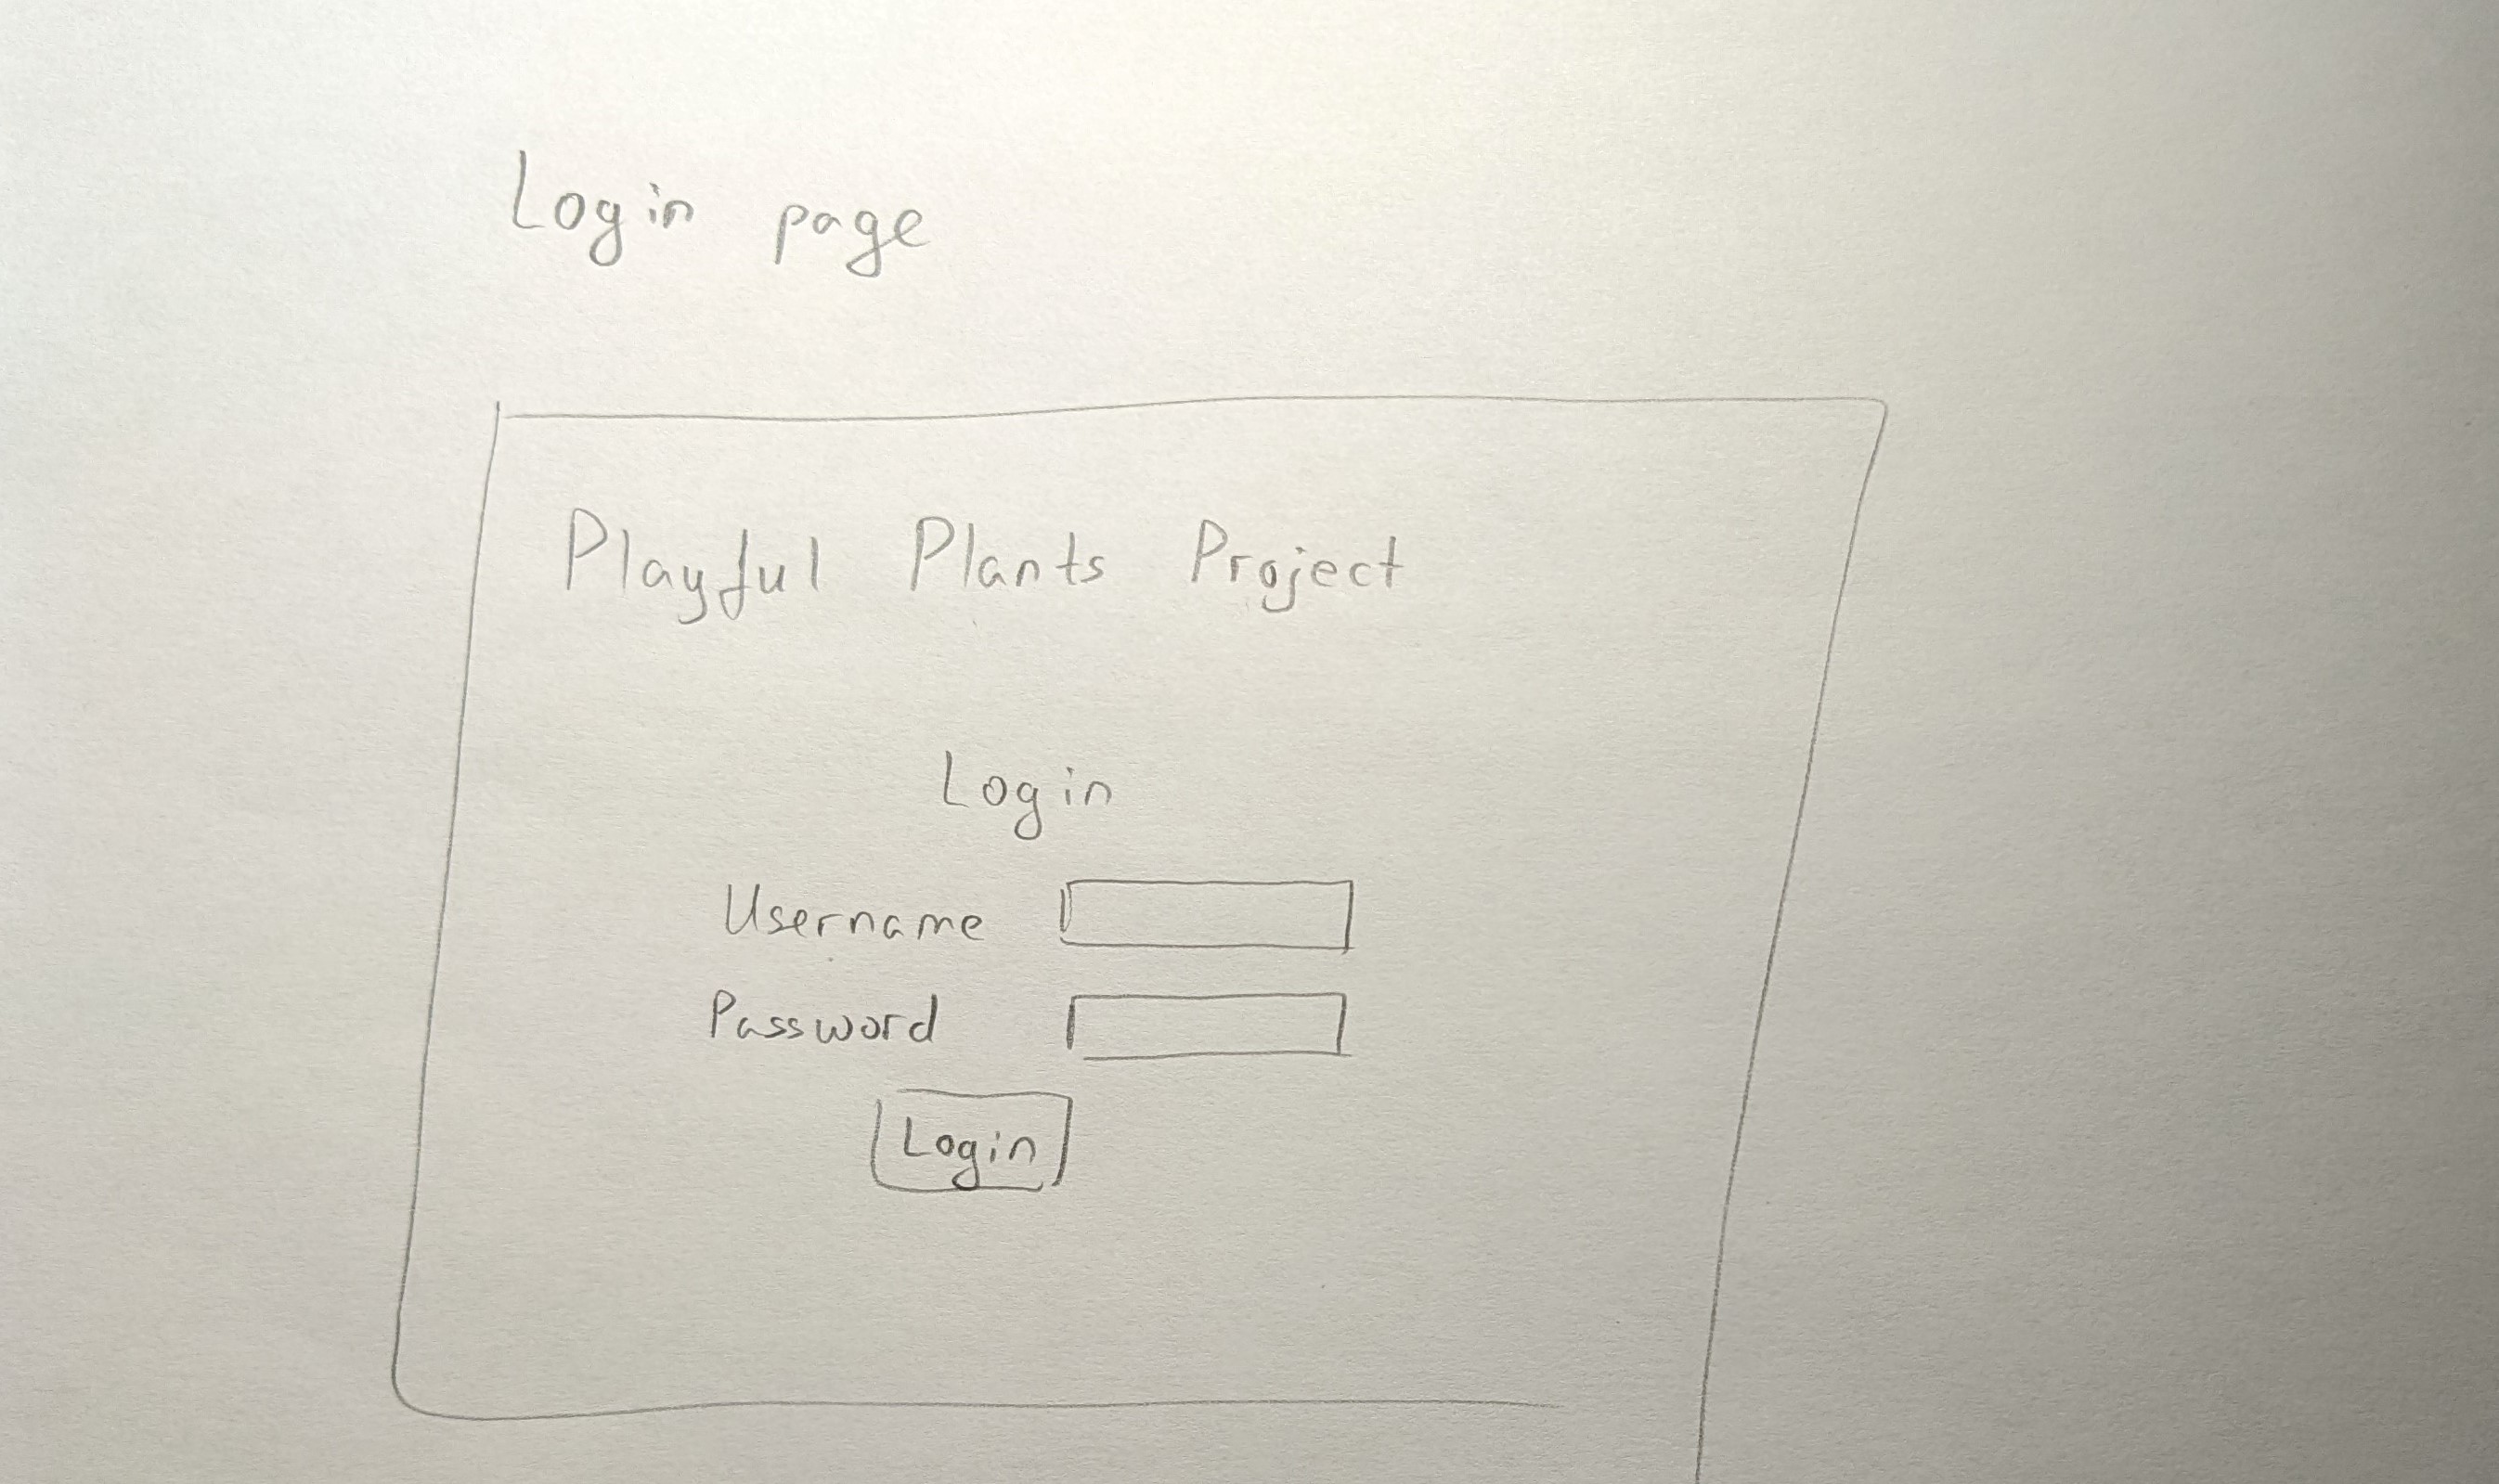 Login page
Playful Plants Project
Login
Username
Password
Login